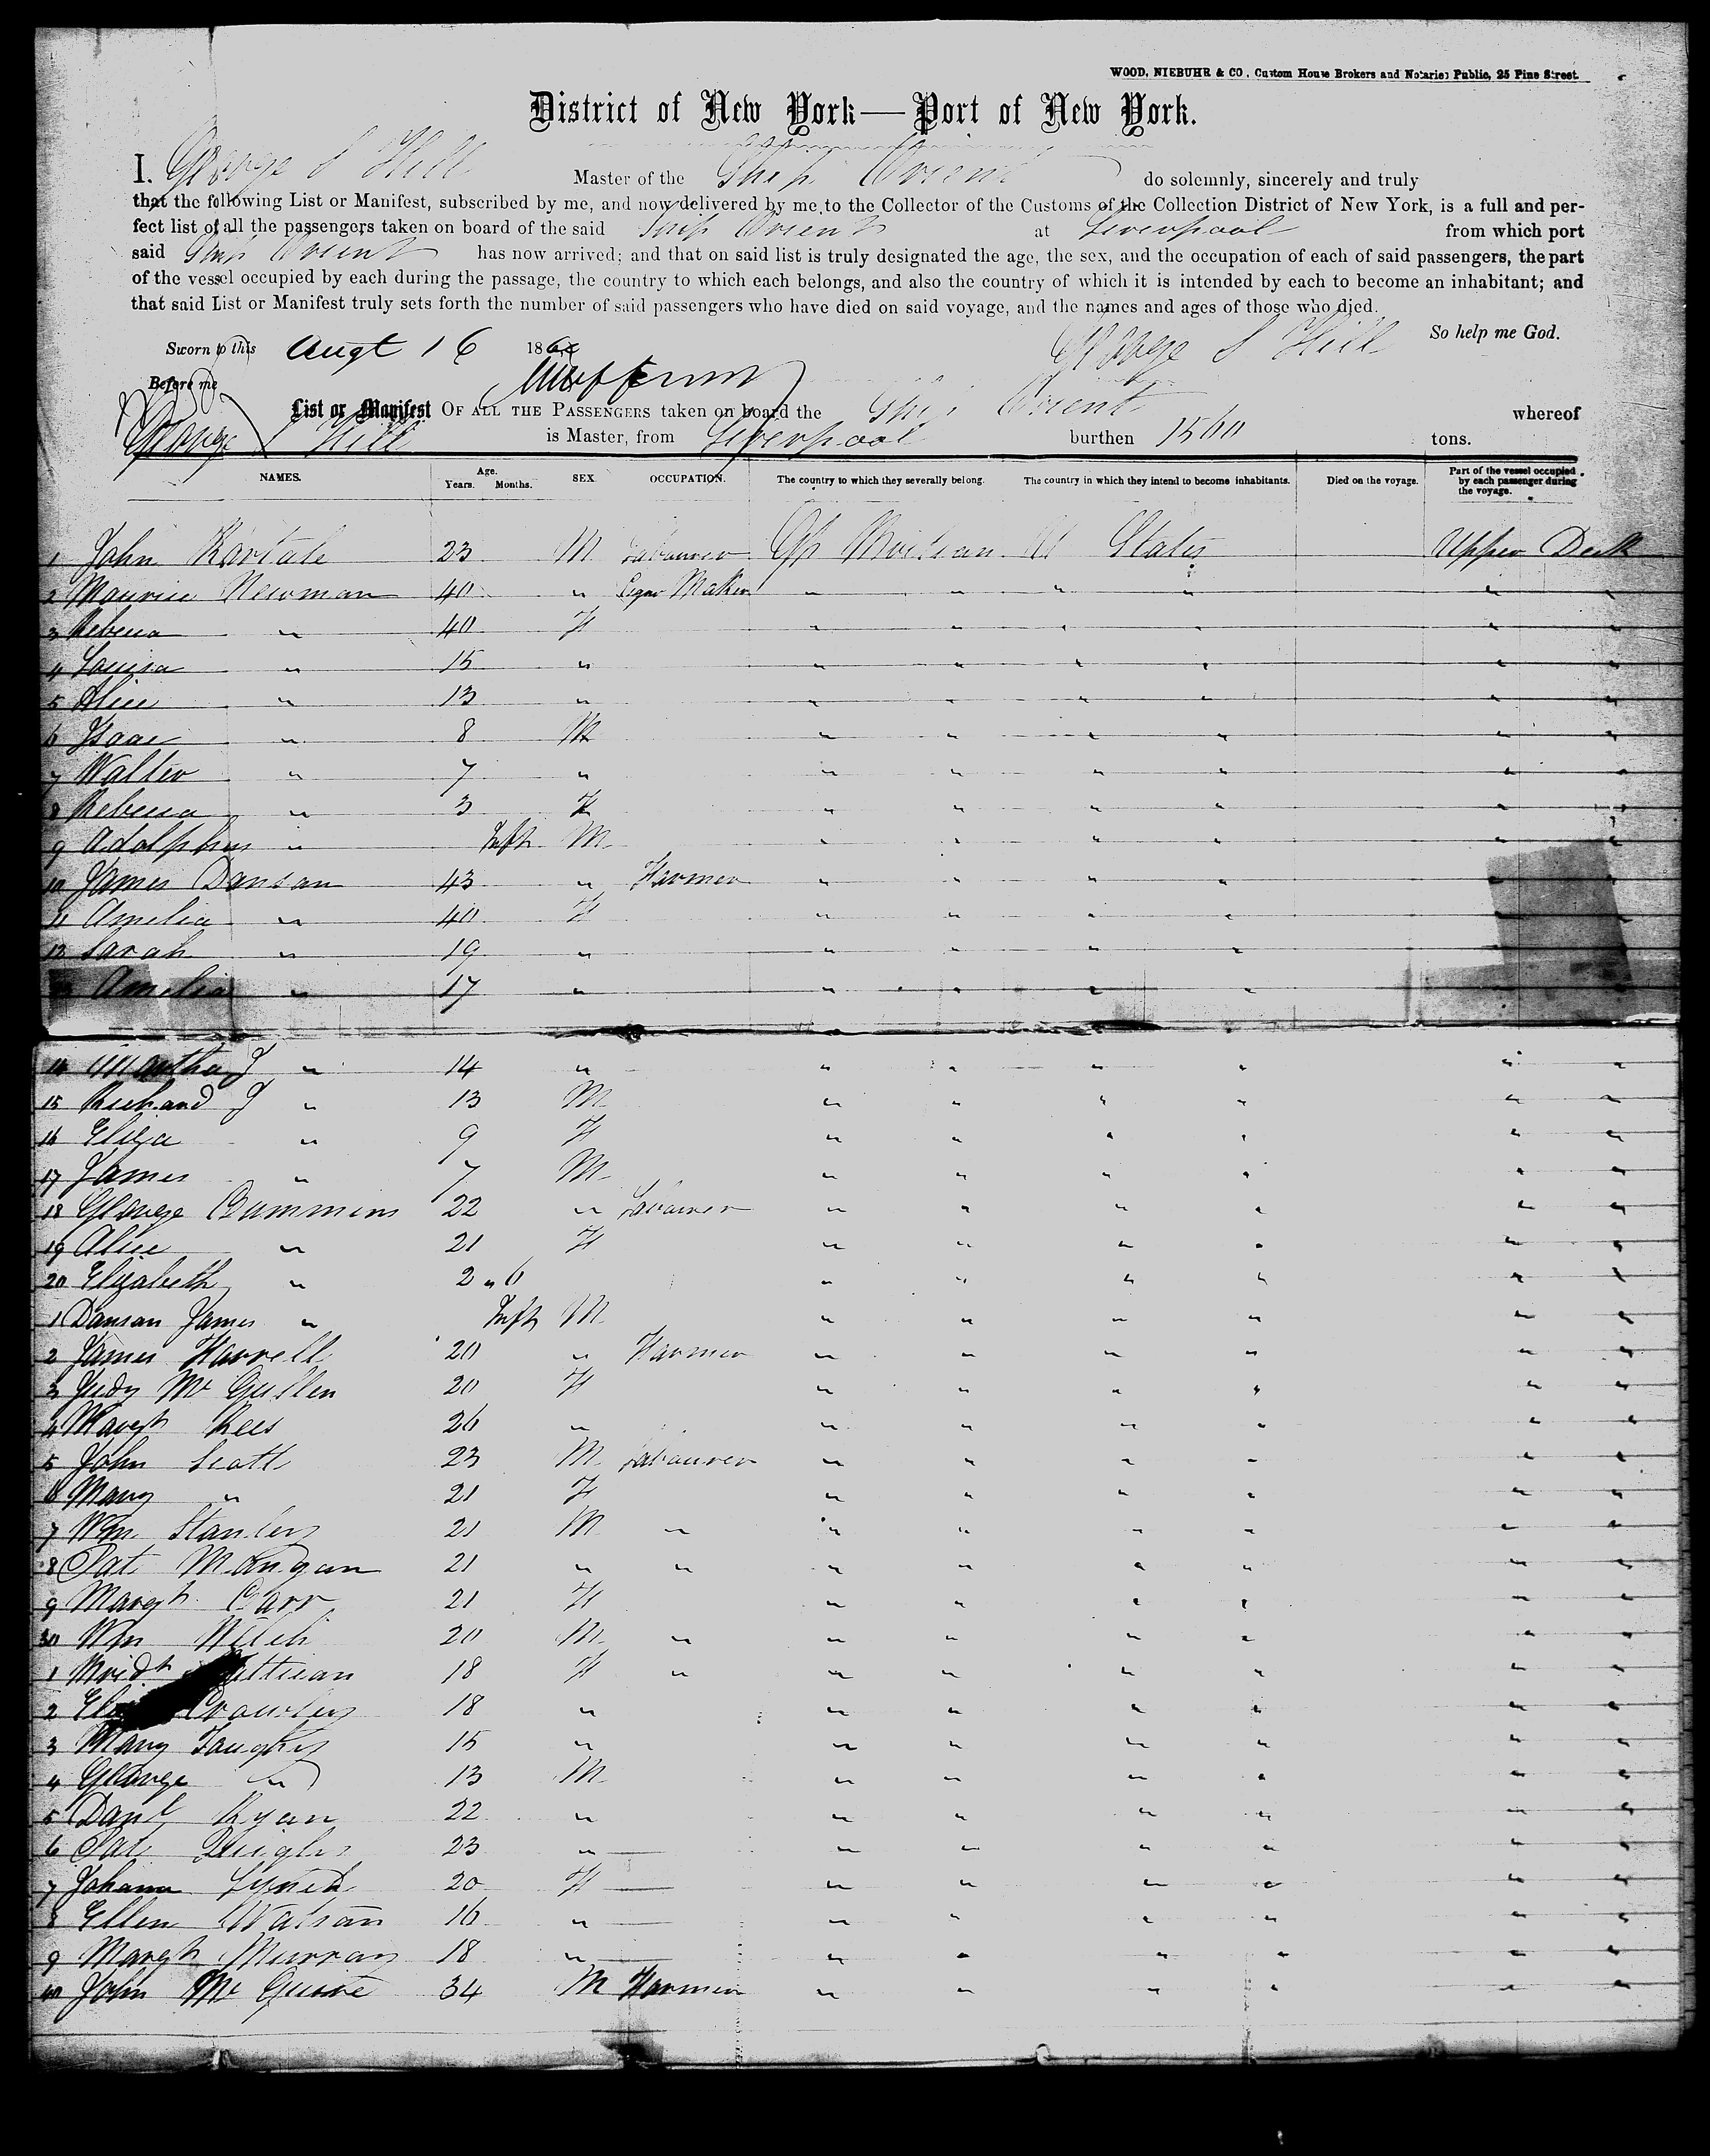 WOOD, NIEBUHR & CO., Custom House Brokers and Notaries Public, 25 Pine Street.
District of New York—Port of New York.
I. George S Hill Master of the Ship Orient do solemnly, sincerely and truly
that the following List or Manifest, subscribed by me, and now delivered by me to the Collector of the Customs of the Collection District of New York, is a full and per-
fect list of all the passengers taken on board of the said Ship Orient at Liverpool from which port
said Ship Orient has now arrived; and that on said list is truly designated the age, the sex, and the occupation of each of said passengers, the part
of the vessel occupied by each during the passage, the country to which each belongs, and also the country of which it is intended by each to become an inhabitant; and
that said List or Manifest truly sets forth the number of said passengers who have died on said voyage, and the names and ages of those who died.
So help me God.
Sworn to this Augt 16 186 George S Hill
Before me
List or Manifest OF ALL THE PASSENGERS taken on board the Ship Orient whereof
George S Hill is Master, from Liverpool burthen 1560 tons.
NAMES. Age. Years. Months. SEX. OCCUPATION. The country to which they severally belong. The country in which they intend to become inhabitants. Died on the voyage. Part of the vessel occupied by each passenger during the voyage.
1 John 23 M Labourer Gt Britian U States Upper Deck
2 Maurice Newman 40 " Cigar Maker " " " " " "
3 Rebecca " 40 F " " " " " "
4 Louisa " 15 " " " " " " "
5 Alice " 13 " " " " " " "
6 Isaac " 8 M " " " " " "
7 Walter " 7 " " " " " " "
8 Rebecca " 3 F " " " " " "
9 Adolphus " Inft M " " " " " "
10 James Dansan 43 " Farmer " " " " " "
11 Amelia " 40 F " " " " " "
12 Sarah " 19 " " " " " " "
Amelia " 17 " " " " "
14 Martha J " 14 " " " " " " "
15 Richard J " 13 M " " " " " "
16 Eliza " 9 F " " " " " "
17 James " 7 M " " " " " "
18 George Cummins 22 " Labourer " " " " " "
19 Alice " 21 F " " " " " "
20 Elizabeth " 2 " 6 " " " " " "
1 Dansan James " Inft M " " " " " "
2 James Farrell 20 " Farmer " " " " " "
3 Judy Mc Gullen 20 F " " " " " "
4 Margt Rees 26 " " " " " " "
5 John Scott 23 M Labourer " " " " " "
6 Mary " 21 F " " " " " "
7 Wm Stanley 21 M " " " " " " "
8 Pat Mangan 21 " " " " " " " "
9 Margt Carr 21 F " " " " " "
30 Wm Welch 20 M " " " " " " "
1 Bridt 18 F " " " " " " "
2 Crowley 18 " " " " " " "
3 Mary 15 " " " " " " "
4 George " 13 M " " " " " "
5 Danl Ryan 22 " " " " " " "
6 Pat Quigley 23 " " " " " " "
7 Johana Lynch 20 F " " " " " "
8 Ellen Watson 16 " " " " " " "
9 Margt Murray 18 " " " " " " "
40 John Mc Guire 34 M Farmer " " " " " "